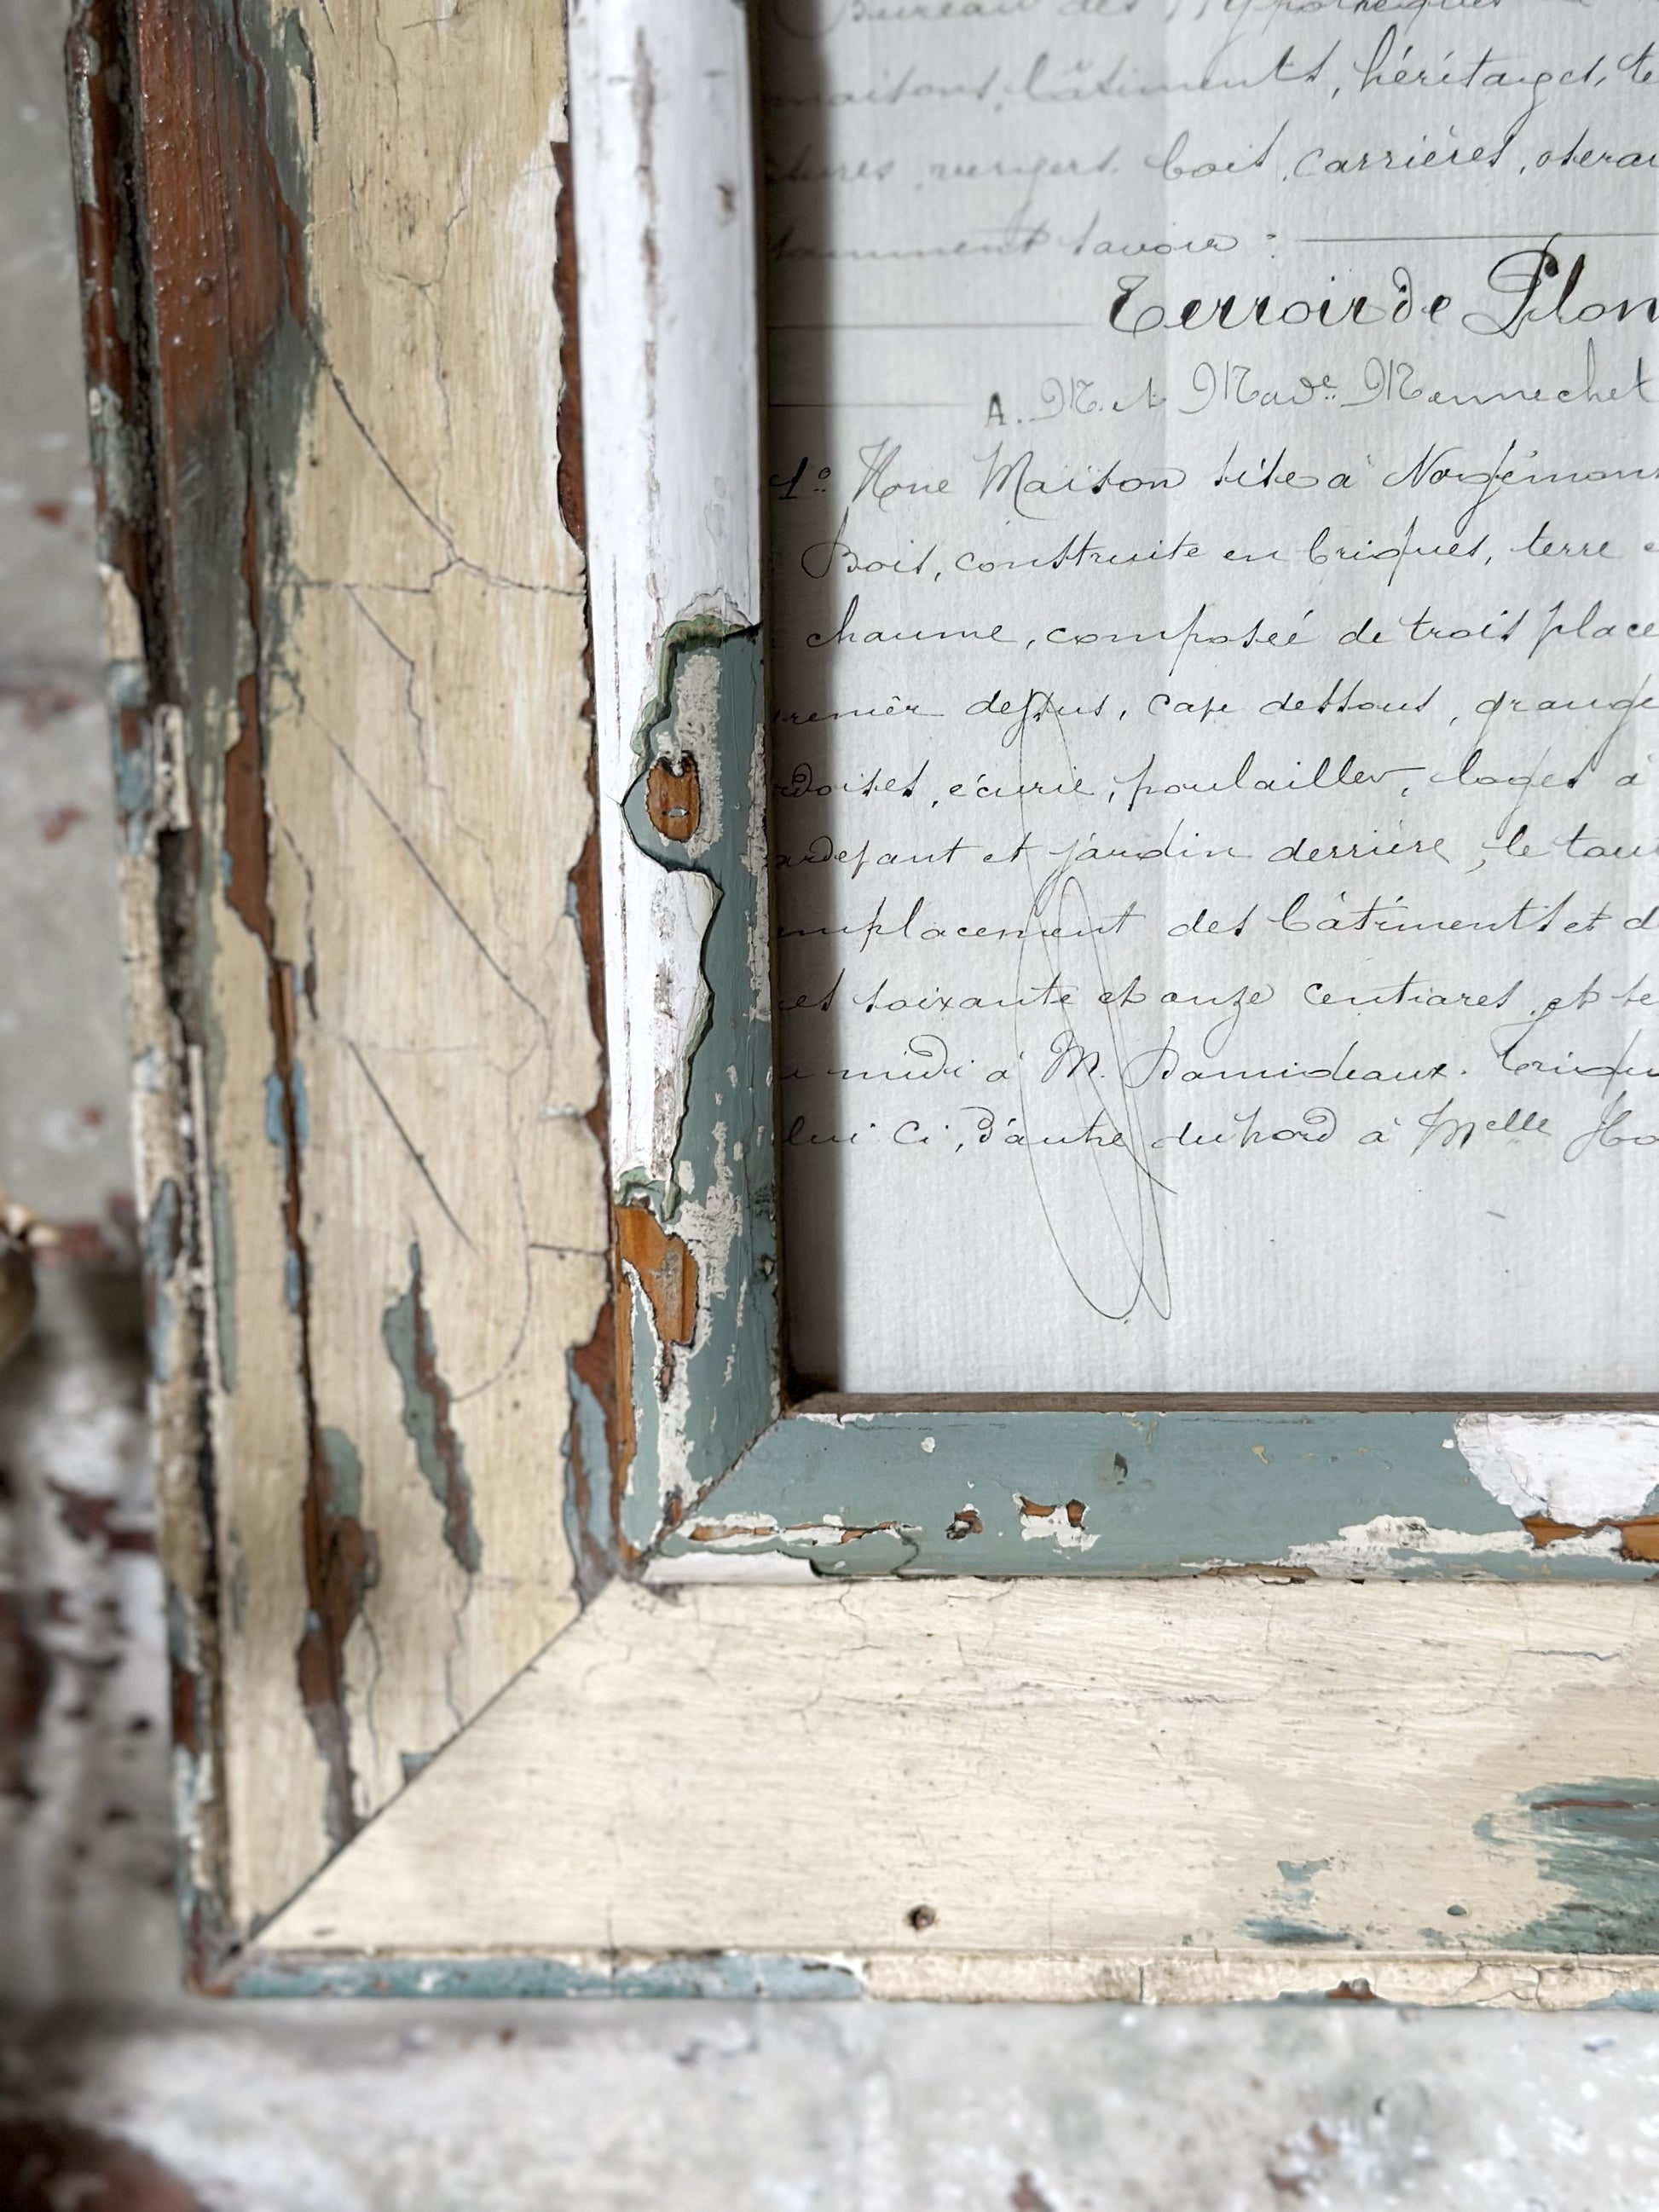 Bureau des Hypothèques
maisons, bâtiments, héritages, te
tures, vergers, bois, carrières, oserai
tamment savoir :
Terroir de Plon
A. M. et Made. Mennechet
1o Une Maison sise à
Bois, construite en briques, terre e
chaume, composée de trois place
renier dessus, cave dessous, grange
rdoises, écurie, poulailler, loges à
ardevant et jardin derrière, le tout
emplacement des bâtiments et d
res soixante et onze centiares, et te
u midi à M. Damideaux.
lui ci, d'autre du nord à Melle